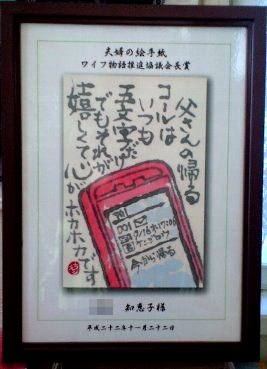 夫婦の絵手紙
ワイフ物語推進協議会会長賞
父さんの帰る
コールは
いつも
五文字だけ
でもそれが
嬉しくて心がホカホカです
9/16 水 17:06
ケンジロウ
今から帰る
知恵子様
平成二十二年十一月二十二日